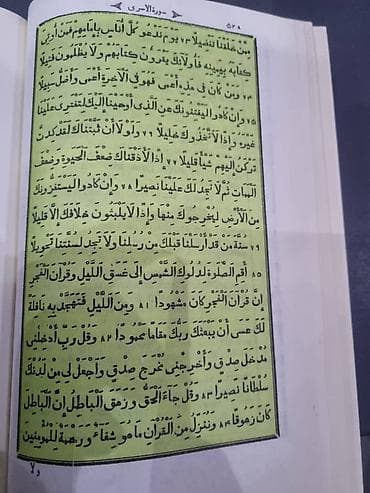 سورة الاسرى ٥٢٨
مِمَّنْ خَلَقْنَا تَفْضِيلًا ٧٣ يَوْمَ نَدْعُو كُلَّ أُنَاسٍ بِإِمَامِهِمْ فَمَنْ أُوتِيَ
كِتَابَهُ بِيَمِينِهِ فَأُولَئِكَ يَقْرَءُونَ كِتَابَهُمْ وَلَا يُظْلَمُونَ فَتِيلًا
٧٤ وَمَنْ كَانَ فِي هَذِهِ أَعْمَى فَهُوَ فِي الْآخِرَةِ أَعْمَى وَأَضَلُّ سَبِيلًا
٧٥ وَإِنْ كَادُوا لَيَفْتِنُونَكَ عَنِ الَّذِي أَوْحَيْنَا إِلَيْكَ لِتَفْتَرِيَ عَلَيْنَا
غَيْرَهُ وَإِذًا لَاتَّخَذُوكَ خَلِيلًا ٧٦ وَلَوْلَا أَنْ ثَبَّتْنَاكَ لَقَدْ كِدْتَ
تَرْكَنُ إِلَيْهِمْ شَيْأً قَلِيلًا ٧٧ إِذًا لَأَذَقْنَاكَ ضِعْفَ الْحَيٰوةِ وَضِعْفَ
الْمَمَاتِ ثُمَّ لَا تَجِدُ لَكَ عَلَيْنَا نَصِيرًا ٧٨ وَإِنْ كَادُوا لَيَسْتَفِزُّونَكَ
مِنَ الْأَرْضِ لِيُخْرِجُوكَ مِنْهَا وَإِذًا لَا يَلْبَثُونَ خِلَافَكَ إِلَّا قَلِيلًا
٧٩ سُنَّةَ مَنْ قَدْ أَرْسَلْنَا قَبْلَكَ مِنْ رُسُلِنَا وَلَا تَجِدُ لِسُنَّتِنَا تَحْوِيلًا
٨٠ أَقِمِ الصَّلٰوةَ لِدُلُوكِ الشَّمْسِ إِلَى غَسَقِ اللَّيْلِ وَقُرْآنَ الْفَجْرِ
إِنَّ قُرْآنَ الْفَجْرِ كَانَ مَشْهُودًا ٨١ وَمِنَ اللَّيْلِ فَتَهَجَّدْ بِهِ نَافِلَةً
لَكَ عَسَى أَنْ يَبْعَثَكَ رَبُّكَ مَقَامًا مَحْمُودًا ٨٢ وَقُلْ رَبِّ أَدْخِلْنِي
مُدْخَلَ صِدْقٍ وَأَخْرِجْنِي مُخْرَجَ صِدْقٍ وَاجْعَلْ لِي مِنْ لَدُنْكَ
سُلْطَانًا نَصِيرًا ٨٣ وَقُلْ جَاءَ الْحَقُّ وَزَهَقَ الْبَاطِلُ إِنَّ الْبَاطِلَ
كَانَ زَهُوقًا ٨٤ وَنُنَزِّلُ مِنَ الْقُرْآنِ مَا هُوَ شِفَاءٌ وَرَحْمَةٌ لِلْمُؤْمِنِينَ
ولا